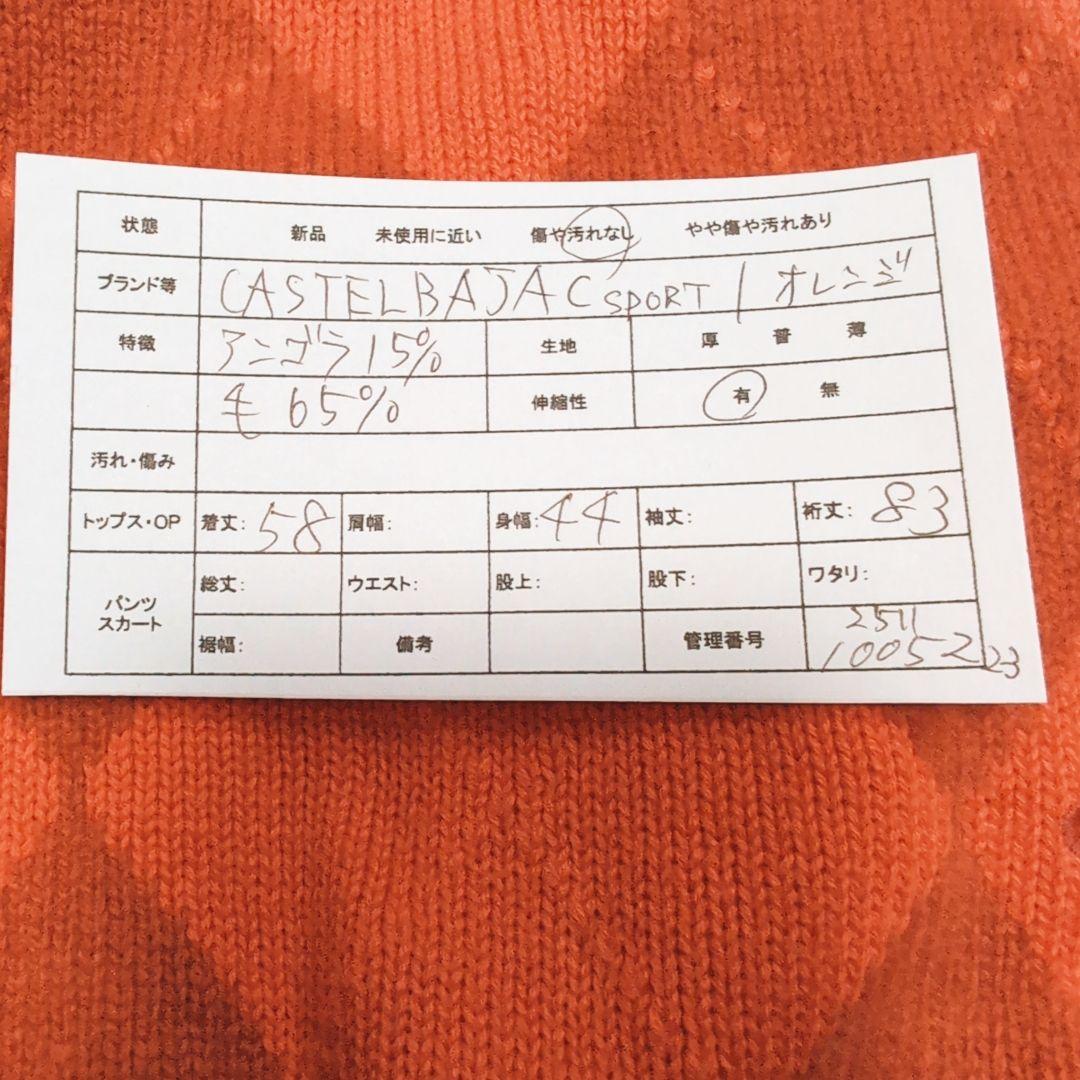 状態 新品 未使用に近い 傷や汚れなし やや傷や汚れあり
ブランド等 CASTELBAJAC SPORT / オレンジ
特徴 アンゴラ15% 生地 厚 普 薄
毛 65% 伸縮性 有 無
汚れ・傷み
トップス・OP 着丈: 58 肩幅: 身幅: 44 袖丈: 裄丈: 83
パンツ スカート 総丈: ウエスト: 股上: 股下: ワタリ:
裾幅: 備考 管理番号 2511
10052
23